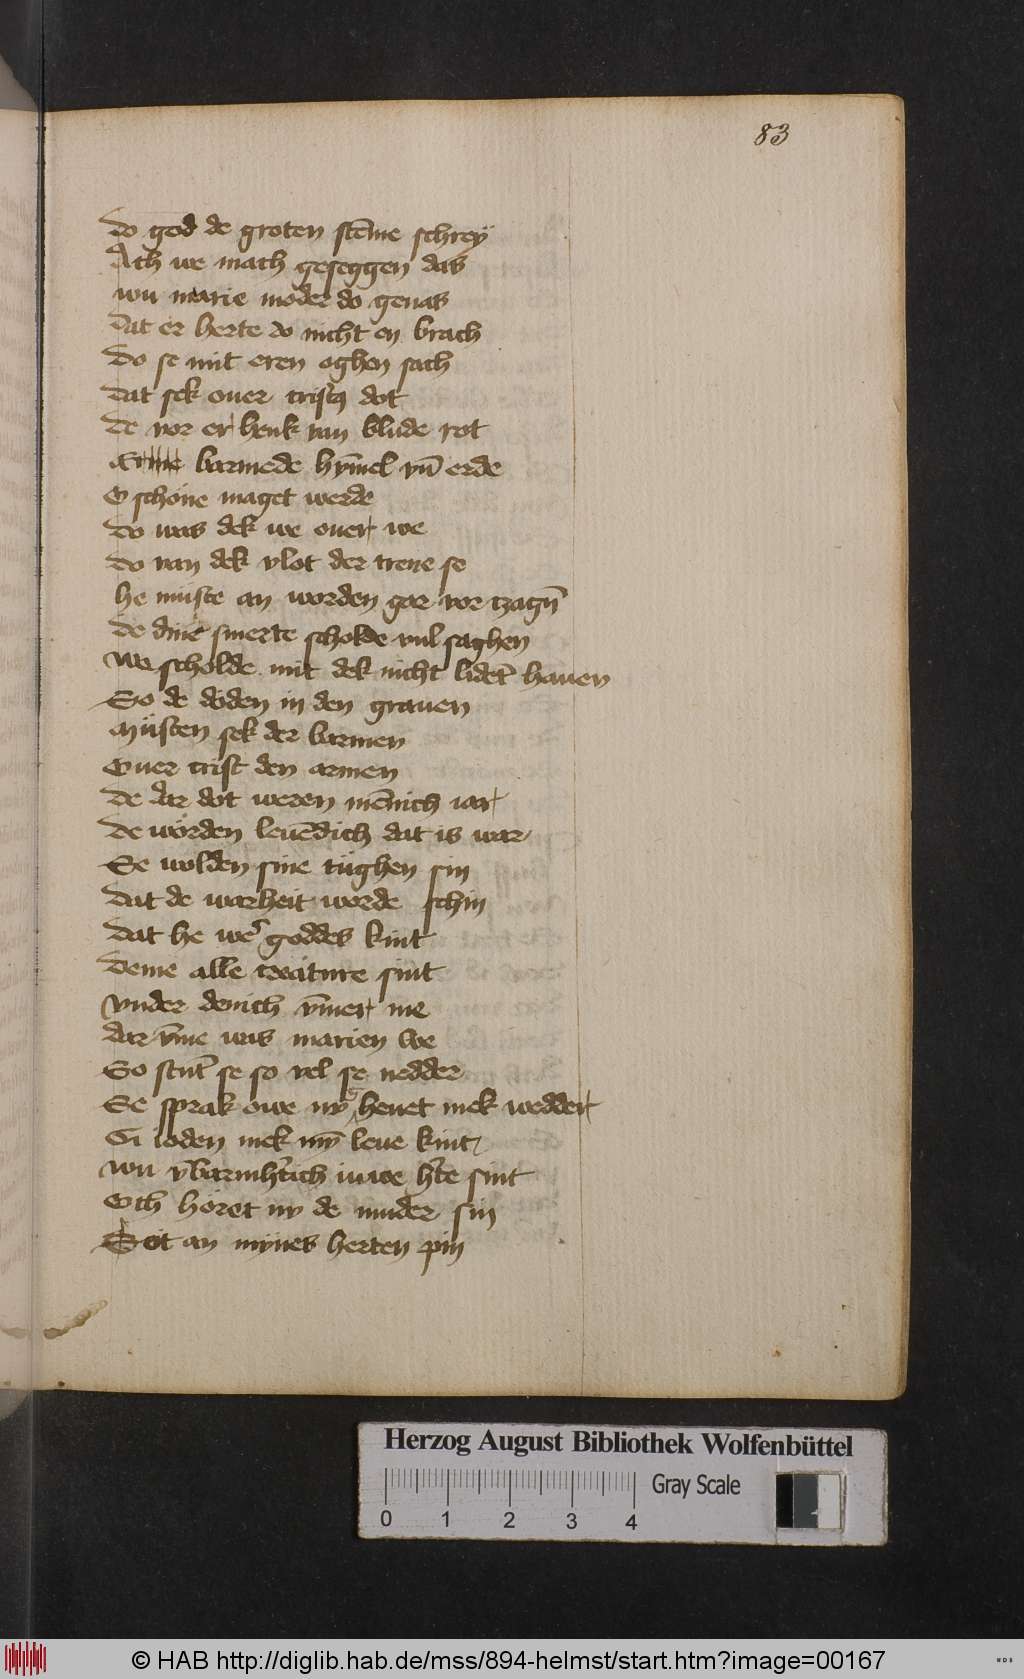 83
do god de groten stēme schrey
Ach we mach geseggen das
wu marie moder do genas
dat er herte do nicht en brach
do se mit eren oghen sach
dat sek ouer cristꝰ dot
de vor er henk van blude rot
barmede hȳmel vn̄ erde
O schöne maget werde
do was dek we ouer we
do van dek vlot der trene se
he müste an worden gar vor tzagn̄
de dine smerte scholde vul saghen
we scholde mit dek nicht lidēt hauen
So de döden in den grauen
Müsten sek der barmen
Ouer crist den armen
de dar dot weren mēnich iar
de wörden leuēdich dat is war
Se wolden sine tüghen sin
dat de warheit worde schin
dat he wer goddes kint
deme alle creature sint
vnder denich ȳmer me
dar vm̄e was marien we
So stnt se so vel se nedder
Se sprak owe ny heuet mek wedder
Gi ioden mek my̅ leue kint
wu vbarmhertich iuwe hte sint
Och höret ny de muder sin
Seit an mynes herten pin
Herzog August Bibliothek Wolfenbüttel
0 1 2 3 4
Gray Scale
© HAB http://diglib.hab.de/mss/894-helmst/start.htm?image=00167